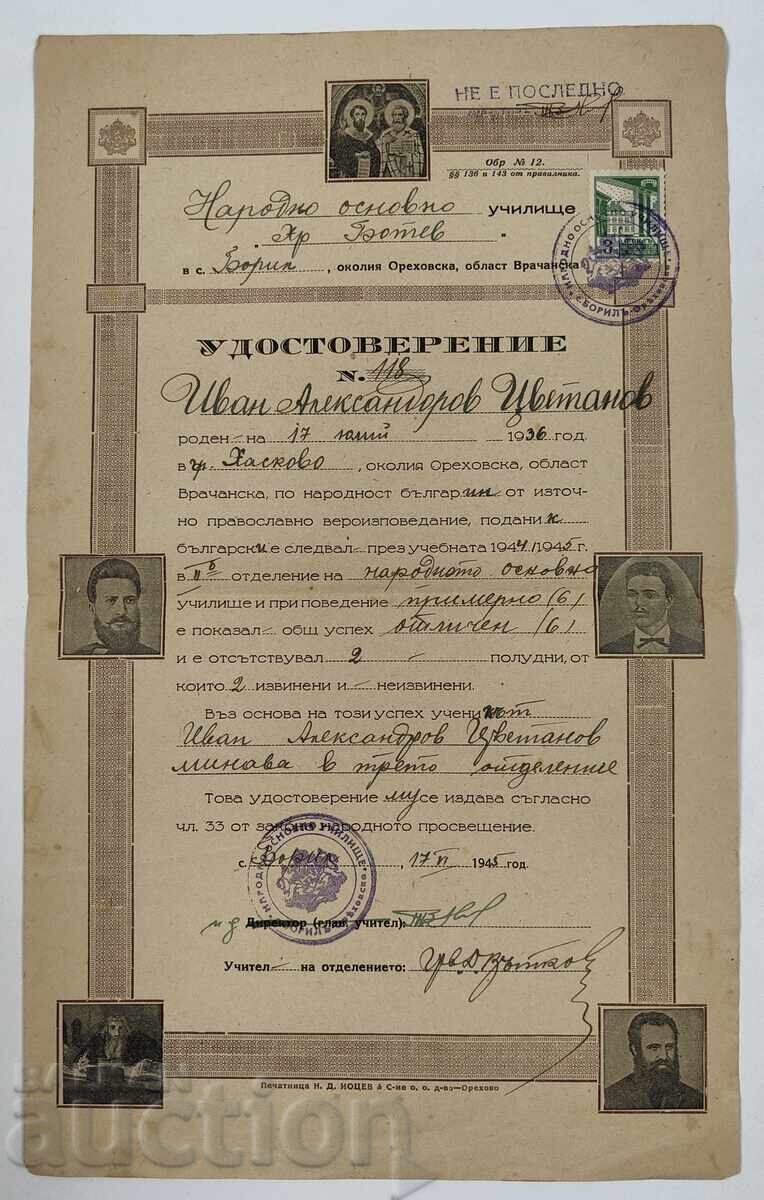 НЕ Е ПОСЛЕДНО
Обр № 12.
§§ 136 и 143 от правилника.
Народно основно училище
"Хр Ботев"
в с. Борил, околия Ореховска, област Врачанска
НАРОДНО ОСНОВНО УЧИЛИЩЕ • с. БОРИЛЪ, Орѣховска •
3
УДОСТОВЕРЕНИЕ
N. 118
Иван Александров Цветанов
роден на 17 юлий 1936 год.
в гр. Хасково, околия Ореховска, област
Врачанска, по народност българин от източ-
но православно вероизповедание, подани к
български е следвал през учебната 1944/1945 г.
в IIб отделение на народното основно
училище и при поведение примерно (6)
е показал общ успех отличен (6)
и е отсътствувал 2 – полудни, от
които 2 извинени и – неизвинени.
Въз основа на този успех ученикът
Иван Александров Цветанов
минава в трето отделение
Това удостоверение му се издава съгласно
чл. 33 от закона народното просвещение.
с. Борил, 17 VI 1945 год.
НАРОДНО ОСНОВНО УЧИЛИЩЕ • с. БОРИЛЪ, Орѣховска •
и д Директор (глав. учител):
Учител – на отделението: Цв. Д. Вътков
Печатница Н. Д. ИОЦЕВ & С-ие о. о. д-во—Орехово
БАЛКАН
auction